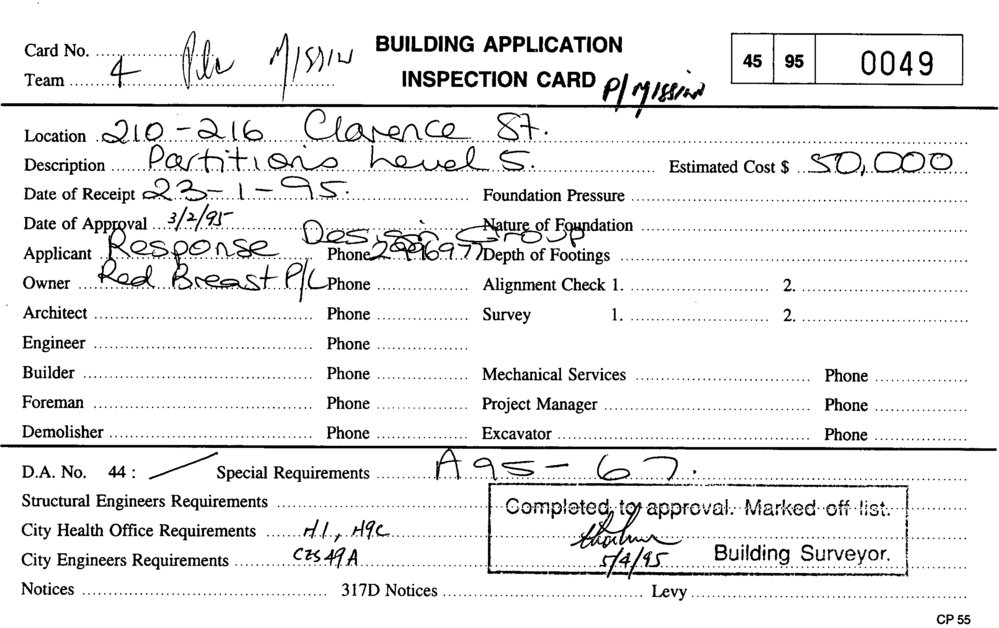 Card No. BUILDING APPLICATION
Team 4 INSPECTION CARD P/Mission
45 95 0049
Location 210-216 Clarence St.
Description Partitions Level 5. Estimated Cost $ 50,000
Date of Receipt 23-1-95. Foundation Pressure
Date of Approval 3/2/95 Nature of Foundation
Applicant Response Design Group Phone Depth of Footings
Owner Red Breast P/L Phone Alignment Check 1. 2.
Architect Phone Survey 1. 2.
Engineer Phone
Builder Phone Mechanical Services Phone
Foreman Phone Project Manager Phone
Demolisher Phone Excavator Phone
D.A. No. 44: Special Requirements A95-67.
Structural Engineers Requirements
City Health Office Requirements H1, H9C
City Engineers Requirements CES49A
Completed to approval. Marked off list.
5/4/95 Building Surveyor.
Notices 317D Notices Levy
CP 55